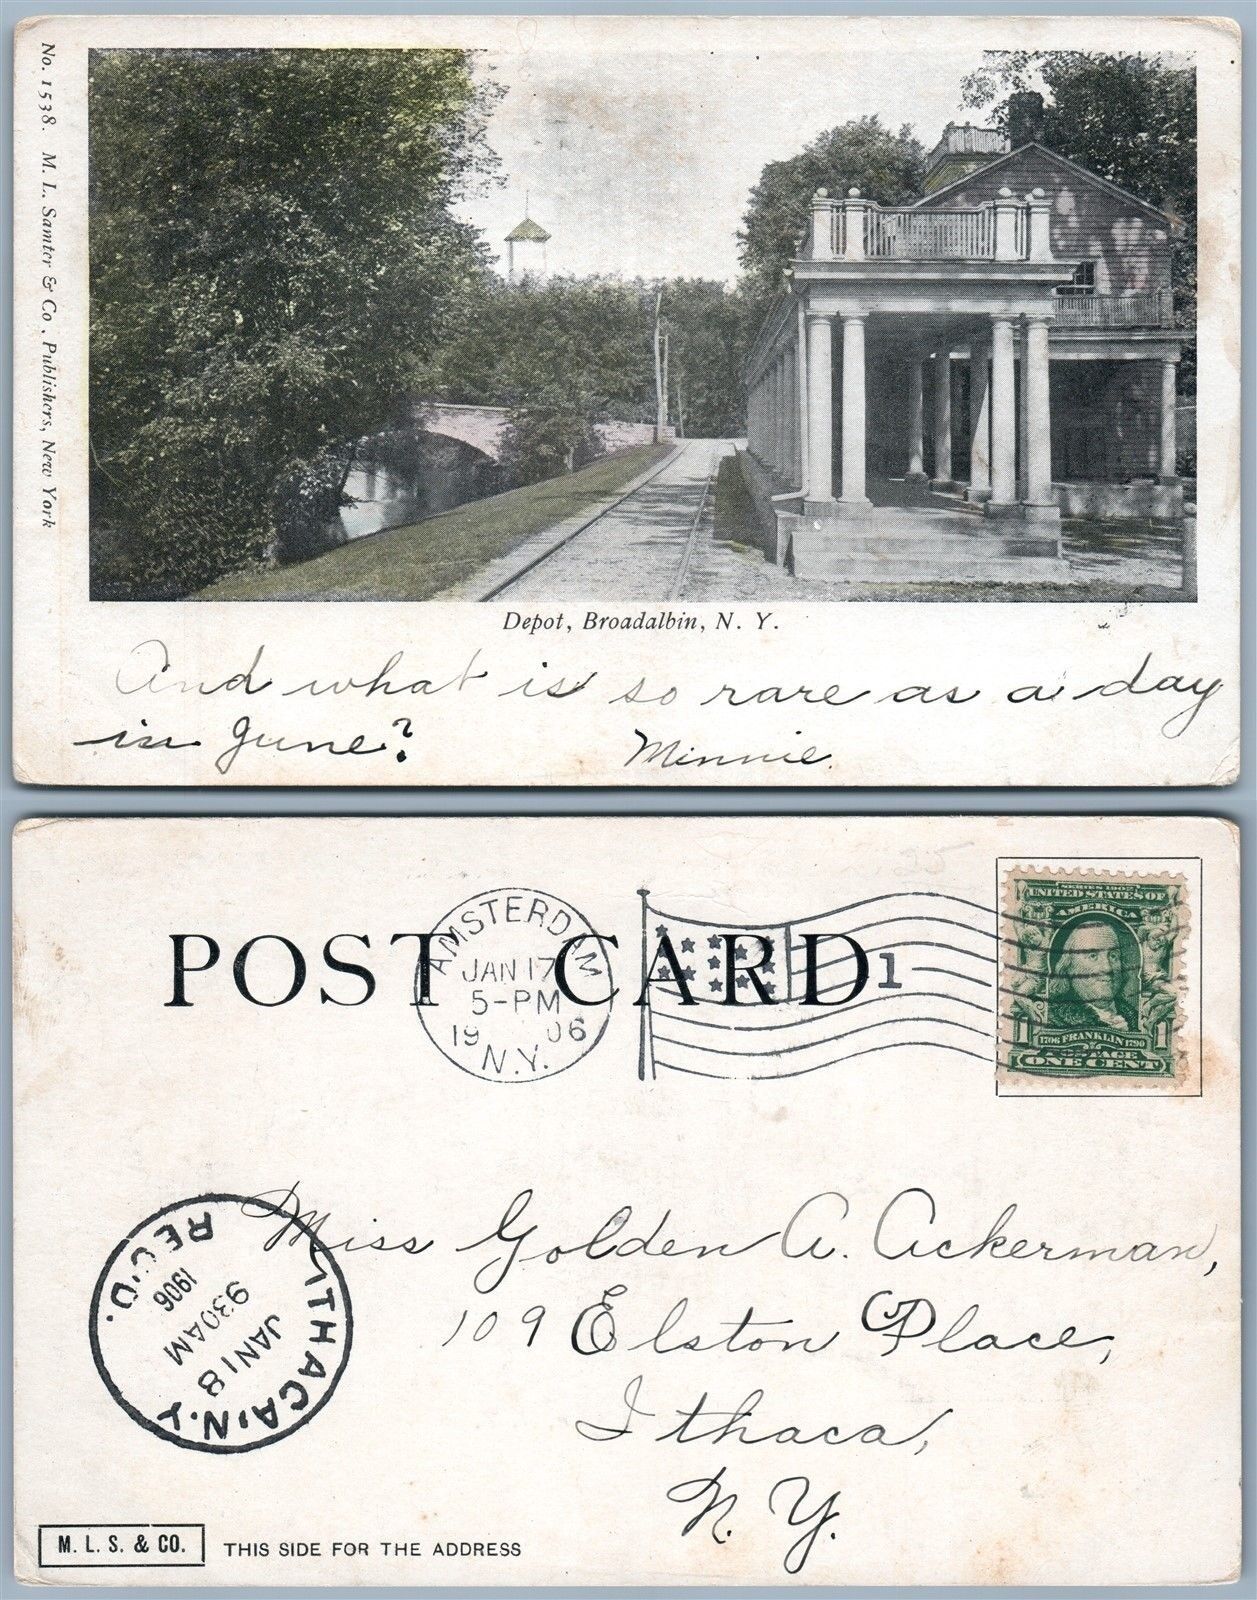 No. 1538. M. L. Samter & Co., Publishers, New York
Depot, Broadalbin, N. Y.
And what is so rare as a day
in June?
Minnie.
POST CARD
AMSTERDAM
JAN 17
5-PM
1906
N.Y.
1
SERIES 1902
UNITED STATES OF
AMERICA
1 1
1706 FRANKLIN 1790
POSTAGE
ONE CENT
ITHACA, N.Y.
JAN 18
930AM
1906
REC'D.
Miss Golden A. Ackerman,
109 Elston Place,
Ithaca,
N. Y.
M. L. S. & CO.
THIS SIDE FOR THE ADDRESS